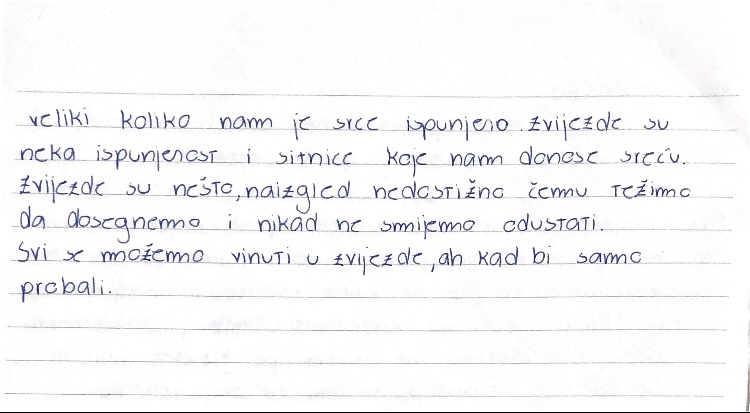 veliki koliko nam je srce ispunjeno. Zvijezde su
neka ispunjenost i sitnice koje nam donose sreću.
Zvijezde su nešto, naizgled nedostižno čemu težimo
da dosegnemo i nikad ne smijemo odustati.
Svi se možemo vinuti u zvijezde, ah kad bi samo
probali.